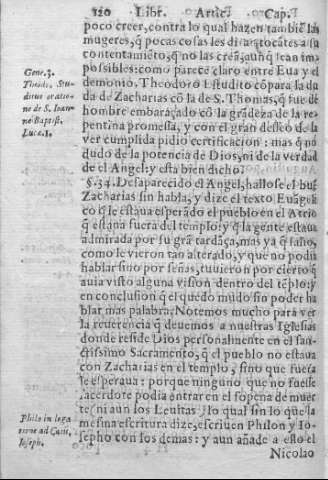 120 Libr. Artic. Cap.
poco creer, contra lo qual hazen tambiẽ las
mugeres, q̃ pocas cosas les dirã q̃ tocãtes a su
contentamiẽto, q̃ no las creã, aunq̃ sean im-
possibles: como parece claro entre Eua y el
demonio. Theodoro Estudito cõpara la du
da de Zacharias cõ la de S. Thomas, q̃ fue de
hombre embaraçado cõ la grãdeza de la re-
pentina promessa, y con el gran desseo de la
ver cumplida pidio certificacion: mas q̃ no
dudo de la potencia de Dios, ni de la verdad
de el Angel: y esta bien dicho.
§.34. Desaparecido el Angel, hallose el buẽ
Zacharias sin habla, y dize el texto Euãgeli
co q̃ le estaua esperãdo el pueblo en el Atrio
q̃ estaua fuera del templo: y q̃ la gente estaua
admirada por su grã tardãça, mas ya q̃ salio,
como le vieron tan alterado, y que no podia
hablar sino por señas, tuuieron por cierto q̃
auia visto alguna vision dentro del tẽplo: y
en conclusion q̃ el quedo mudo sin poder ha
blar mas palabra. Notemos mucho para ver
la reuerencia q̃ deuemos a nuestras Iglesias
donde reside Dios personalmente en el san-
ctissimo Sacramento, q̃ el pueblo no estaua
con Zacharias en el templo, sino que fuera
le esperaua: porque ninguno que no fuesse
sacerdote podia entrar en el so pena de muer
te, ni aun los Leuitas: lo qual sin lo que la
mesma escritura dize, escriuen Philon y Io-
sepho con los demas: y aun añade a esto el
Nicolao
Gene.3.
Theodo. Stu-
ditus oratio-
ne de S. Ioan-
ne Baptist.
Luca.1.
Philo in lega
tione ad Caiũ,
Ioseph.